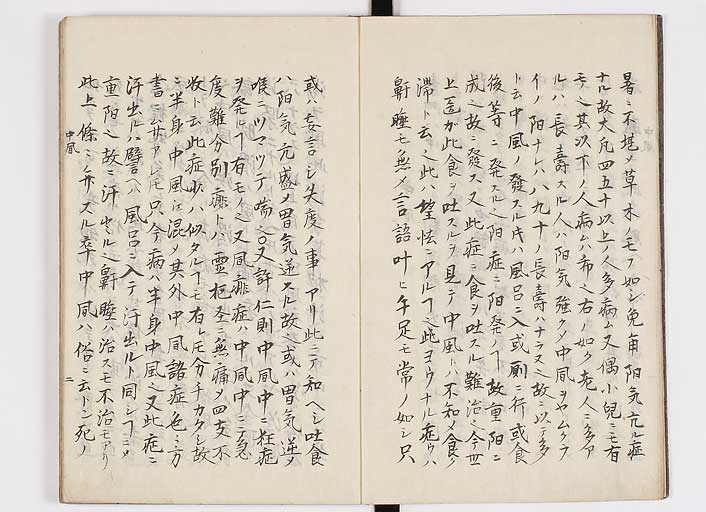 暑ニ不堪メ草木ノモユ如シ兎角陽気亢ル症
ナル故大凡四五十以上ノ人多病ム又偶小児ニモ有
モノ之其以下ノ人病ムハ希之右ノ如ク老人ニ多フア
ルハ長壽スル人ハ阳気強クノ中風ヲヤムクラ
イノ阳ナレハ八九十ノ長壽ハナラヌ之故ニ以テ多
ト云中風ノ發スル片ハ風呂ニ入或厠ニ行或食
後等ニ發スル之阳症ニ阳発ノヿ故重阳ニ
成之故ニ發ス又此症ニ食ヲ吐スル難治之今世
上医ガ此食ヲ吐スルヲ見テ中風トハ不知メ食
滞ト云之此ハ埜怯ニアルヿ之此ヨウナル症ウハ
鼾睡モ無メ言語叶ヒ手足モ常ノ如シ只
或ハ妄言シ失度ノ事アリ此ニテ知ヘシ吐食
ハ阳気亢盛メ胃気逆スル故之或ハ胃気逆メ
喉ニツマツテ喘之又許仁則中風中ニ狂症
ヲ発ルヿ有モノ之又風痱症ハ中風中ニテ急
度難分別痱トハ霊枢ニ無痛メ四支不
收ト云此症状ハ似タルヿモ有レ圧分チカタシ故
ニ半身中風ニ混ス其外中風諸症色々方
書ニ出サアレ圧只今病ハ半身中風之又此症ニ
汗出ルハ譬ヘハ風呂ニ入テ汗出ルト同シヿニメ
重阳之故ニ汗出ル之鼾睡ハ治スモ不治モアリ
此上條ニ弁スル卒中風ハ俗ニ云トン死ノ
中風
二